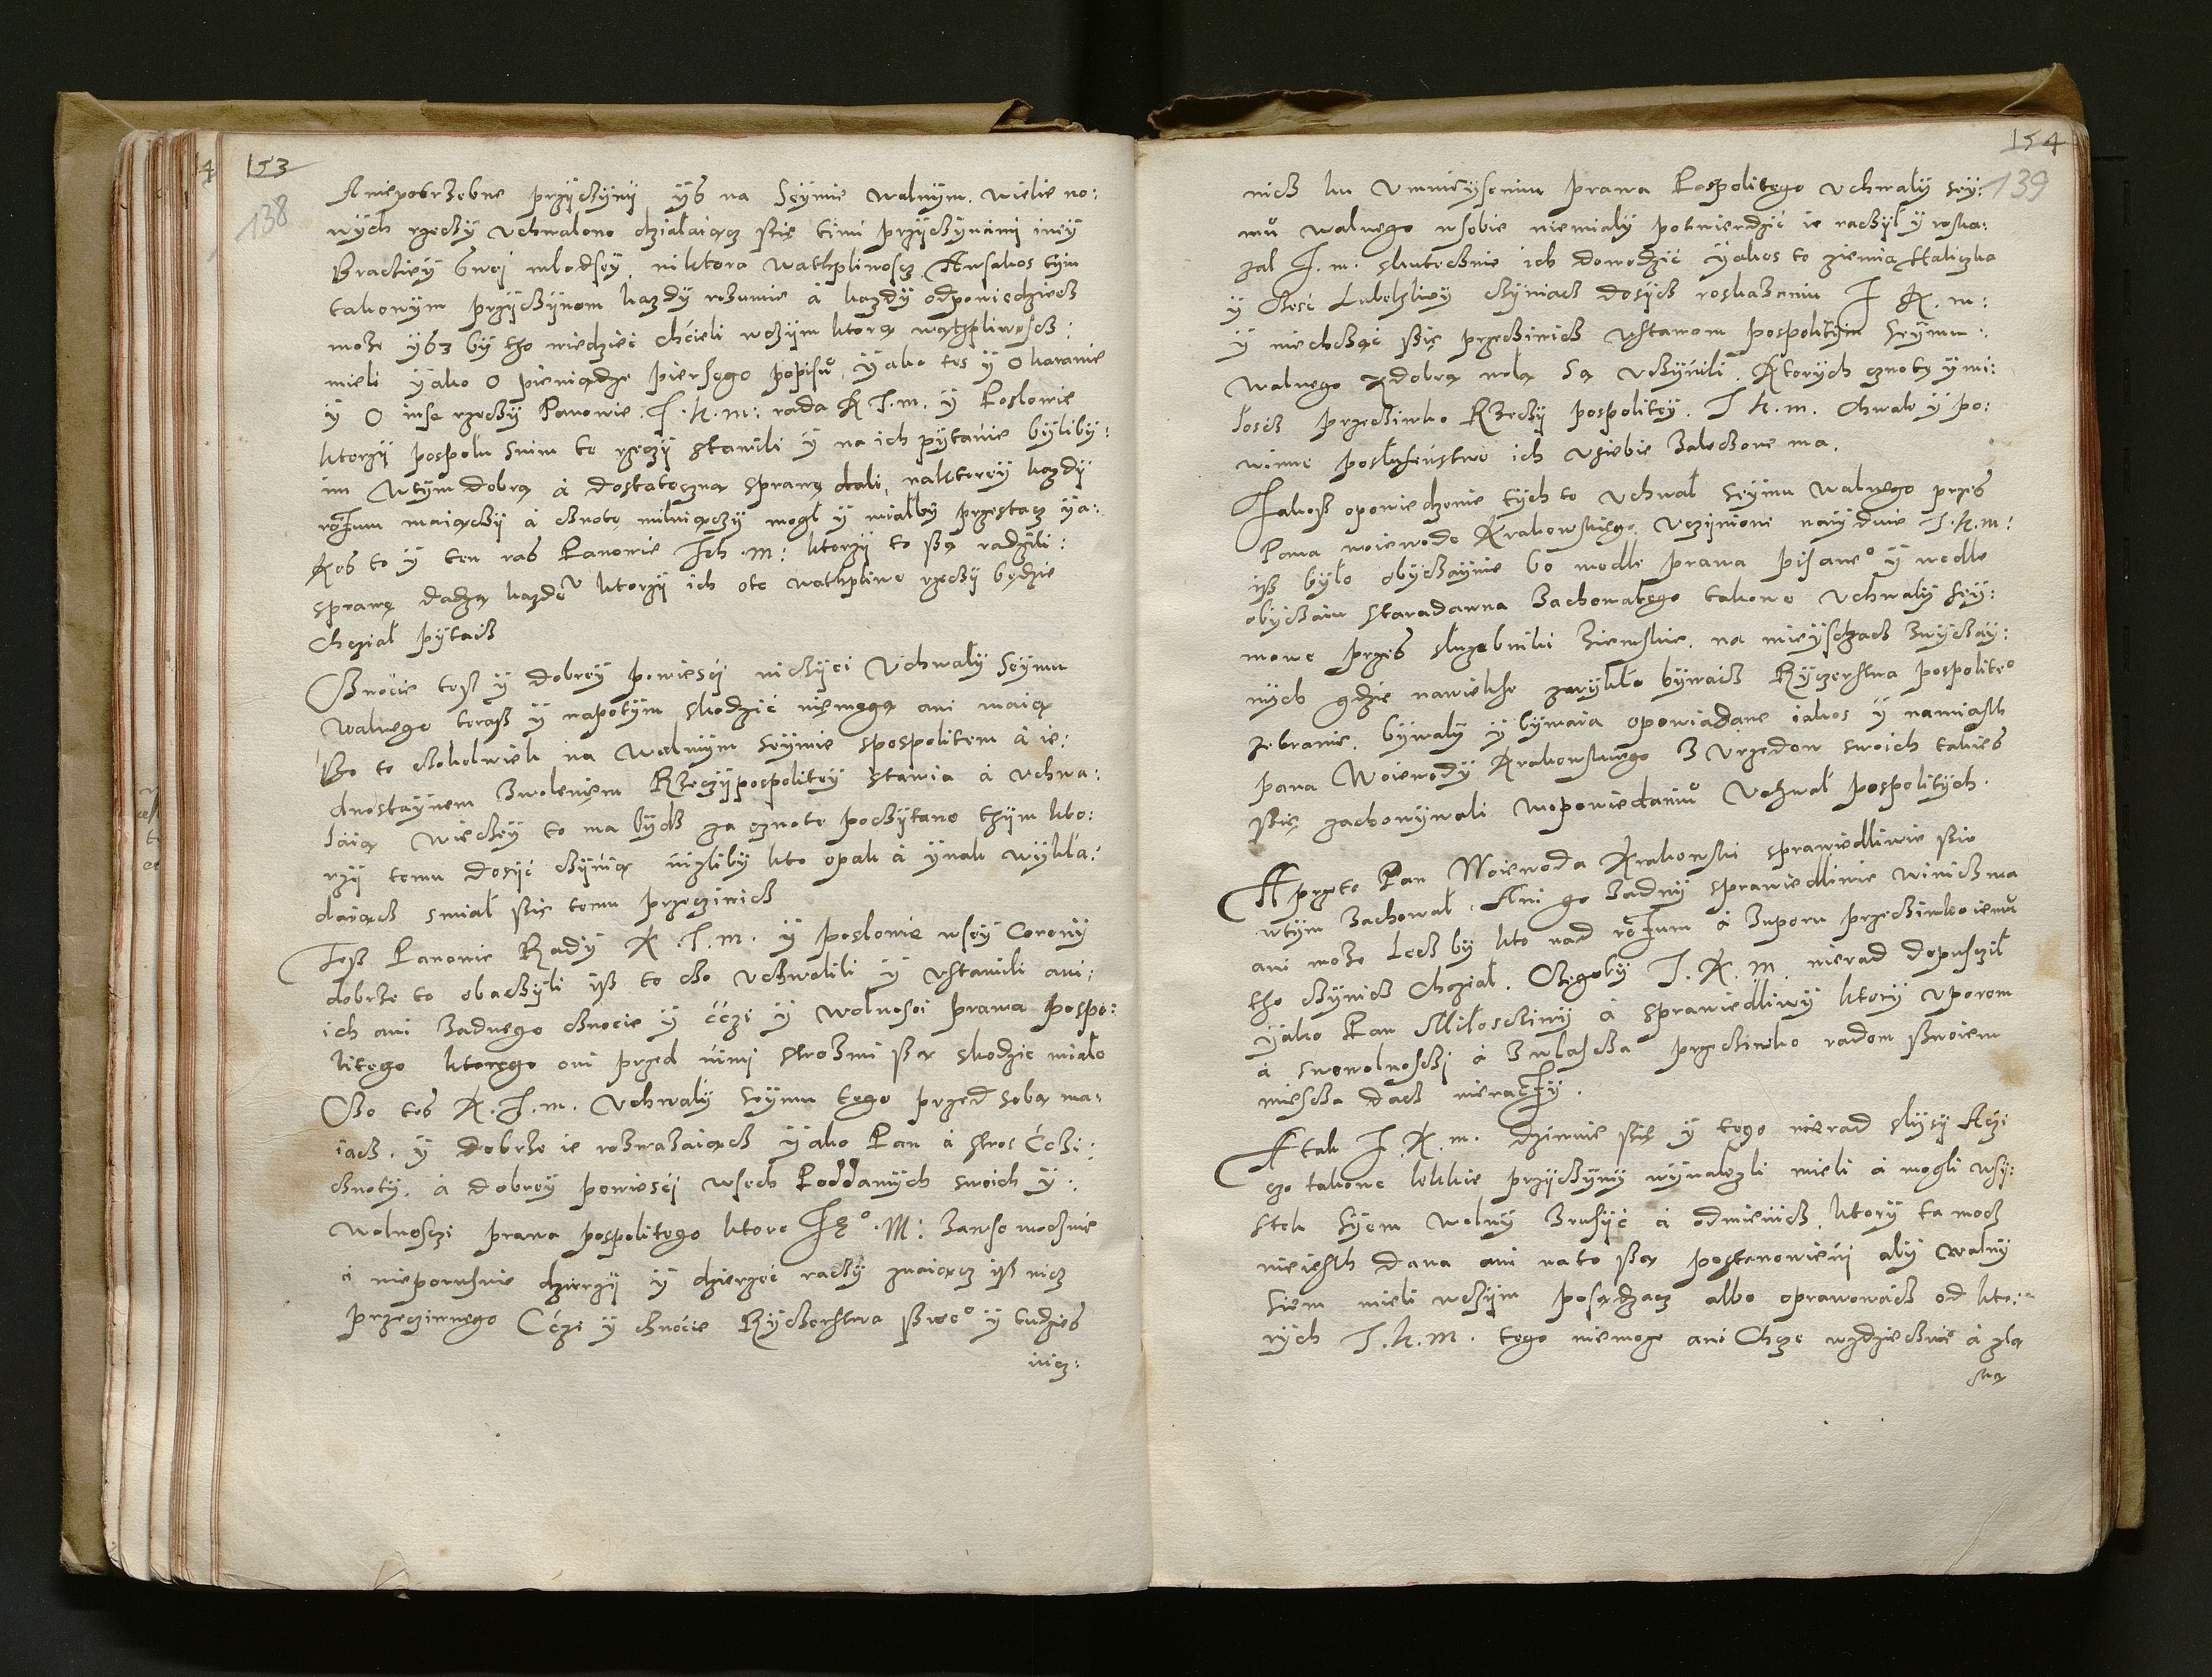 153
138
A niepotrzebne przyczyny yß na Seymie walnym. wielie no:
wych rzeczy uchwalono działaiącz ßię timi przyczynami iney
Braciey ßwej młodszey, niktora wathpliwoscz. A wsakos tym
takowym przyczynom kazdy rozumie à kazdy odpowiedziecz
może yß by tho wiedzieć chcieli wczym którą wathpliwoscz:
mieli yako o pieniądze pierszego popisu, yako tes y o karanie
y o insze rzeczy Panowie J.K.m: rada K J.m. y Posłowie
ktorzy pospołu snim te rzeczy stawili y na ich pytanie byliby:
im wtym dobrą à dostateczną sprawę dali, naktorey kazdy
rozum maiączy à cznotę miluiączy mogł y miałby przestacz ya:
kos to y ten ras Panowie Ich M: ktorzy to ßą radzili:
sprawę dadzą kazdeu ktorzy ich ote wathpliwe rzeczy będzie
chczial pytacz
Cznocie tesz y dobrey powiesci niczyei Uchwały Seymu
walnego teraß y napotym skodzić niemogą ani maią
Bo to czokolwiek na Walnym Seymie spospolitem à ie:
dnostaynem zwoleniem Rzeczypospolitey stawia à uchwa:
laią więczey to ma bydz za cznotę poczytano thym kto:
rzy temu dosyć czynią niżliby kto opak à ynak wykła:
daiącz smiał ßię temu przeciwicz
Tesz Panowie Rady K.J.m. y posłowie wsey Corony
dobrze to obaczyli iß to czo uchwalili y ustawili ani:
ich ani żadnego cznocie y ćczi y wolnosci prawa pospo:
litego ktorego oni przed nimi strożmi ßą skodzic miało
Czo tes K.J.m. Uchwały Seymu tego przed sobą ma:
iącz, y dobrze ie rozważaiącz yako Pan à stros Ćczi:
cznoty, à dobrey powiesci wsech Poddanych swoich y:
wolnosczi prawa pospolitego ktore Jgo.M: zawse mocznie
i nieporusznie dzierzy y dzierżec raczy znaiącz iß nicz
przeczinnego Cćzi y cznocie Ryczerstwa ßweo y tudzies
nicz:
154
139
nicz ku Umnieyseniu prawa Pospolitego Uchwały sey:
mu walnego wsobie niemiały potwierdzić ie raczył y roska:
zał J.m. skutecznie ich dowodzić yakos to ziemia Haliczka
y część Lubelszkiey czyniącz dosycz roskazaniu J K.m:
y niechcząc ßię przeciwicz Ustawom pospolitym Seymu:
walnego z dobrą wolą Są uczynili. Ktorych cznotę y mi:
łoscz przeciwko Rzeczy pospolitey. J K.m. Chwałe y po:
winne poslusenstwo ich usiebie zaleczone ma.
Jakoß opowiedzenie tych to Uchwał Seymu Walnego przes
Pana woiewodę Krakowskiego. Uczynioni nayduie J.K.m:
iß było obyczaynie bo wedle prawa pisaneo y wedle
obyczaiu staradawna zachowałego takowe Uchwały Sey:
mowe przes sługebniki ziemskie. na mieysczach zwyczay:
nych gdzie nawieksze zwykło bywacz Ryczerstwa pospoliteo
zebranie. bywały y bywaia opowiadane iakos y namiastk
pana Woiewody Krakowskiego z Urzędow swoich takies
ßię zachowywali wopowiedaniu Uchwał pospolitych.
A przeto Pan Woiewoda Krakowski sprawiedliwie ßie
wtym zachował. Ani go żadny sprawiedliwie winicz ma
ani może Lecz by kto nad rozum à z uporu przeciwko iemu
tho czynicz chczial. Czegoby J.K.M. nierad dopuscził
yako Pan Miłosciwy à sprawiedliwy ktory uporom
à swowolnosczi à zwlaszcza przeciwko radom ßwoiem
miescza dacz nieraczy.
A tak J.K.m. dziwuie ßię y tego nierad słysy A czi
czo takowe lekkie przyczyny wynalezli mieli à mogli wsy:
stek Syem Walny zrusyć à odmienicz, ktory ta mocz
nieiesth dana ani nato ßą postanowieni aby Walny
Siem mieli wczym posądzacz albo oprawowacz od kto:
rych J.K.m. tego niemoże ani Chcze wzdziecznie à zla
ską